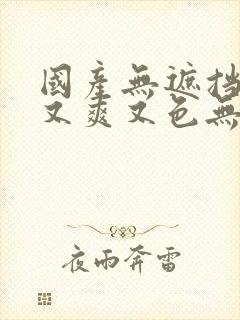 國產無遮挡
又爽又色無
夜雨奔雷